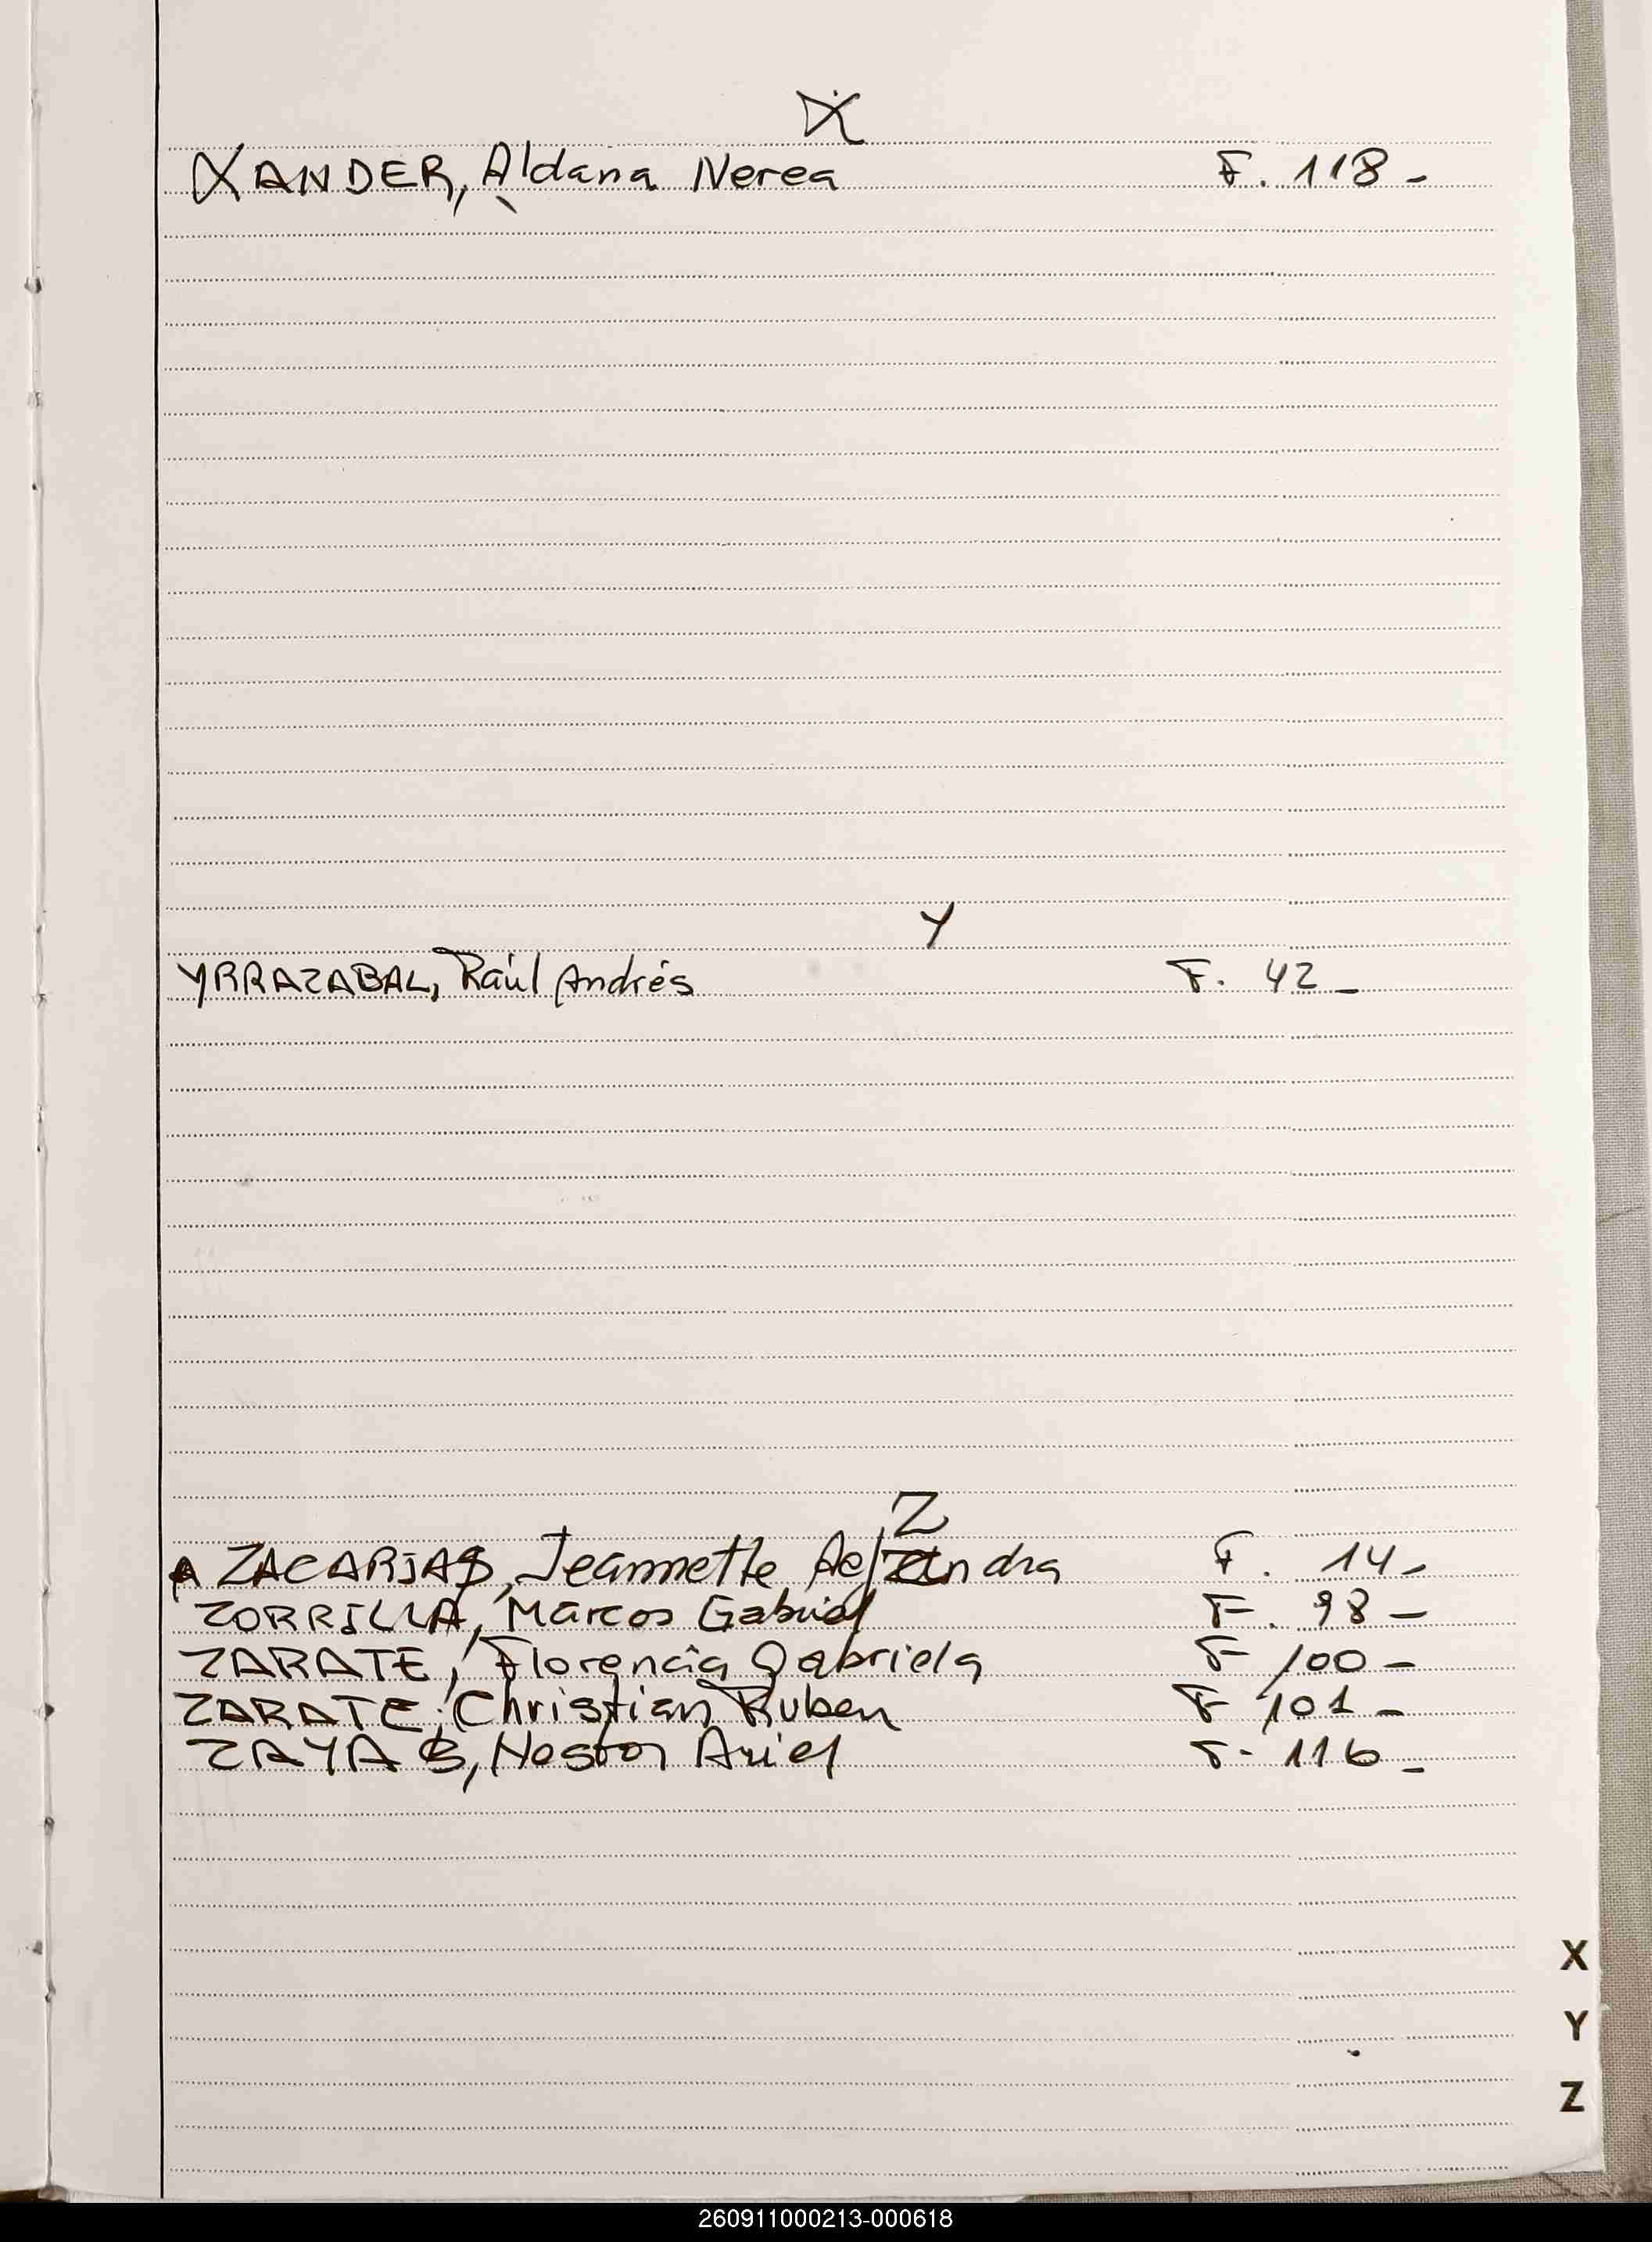 X
XANDER, Aldana Nerea F. 118 -
Y
YRRAZABAL, Raúl Andrés F. 42 -
Z
ZACARIAS, Jeannette F. 14 -
ZORRILLA, Marcos Gabriel F. 98 -
ZARATE, Florencia Gabriela F 100 -
ZARATE, Christian Ruben F 101 -
ZAYAS, Nestor Ariel F- 116 -
X
Y
Z
260911000213-000618